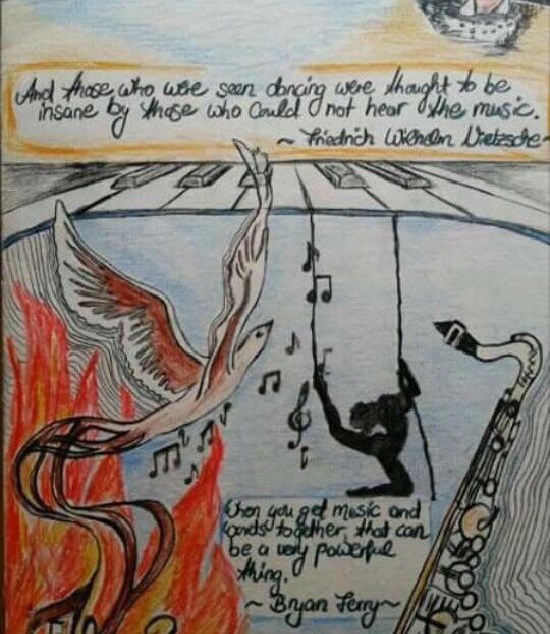 And those who were seen dancing were thought to be
insane by those who could not hear the music.
~ Friedrich Wilhelm Nietzsche
When you get music and
words together, that can
be a very powerful
thing.
~ Bryan Ferry ~